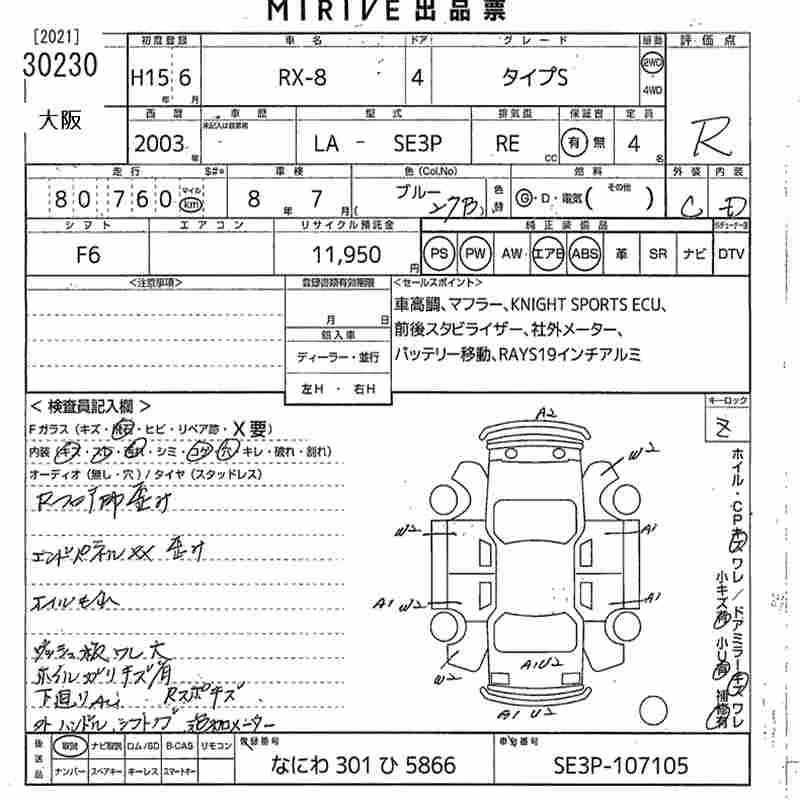 MIRIVE 出品票
[2021]
30230
大阪
初度登録 車名 ドア グレード 駆動 評価点
H15 6 RX-8 4 タイプS 2WD 4WD
年 月
西暦 車歴 型式 排気量 保証書 定員
2003 年 未記入は自家用 LA - SE3P RE CC 有 無 4 名 R
走行 $#* 車検 色(Col.No) 燃料 外装 内装
80760 マイル km 8 年 7 月 ブルー 27B 色替 G・D・電気( その他 ) C D
シフト エアコン リサイクル預託金 純正装備品
F6 11,950 円 PS PW AW エアB ABS 革 SR ナビ DTV
<注意事項> 登録書類有効期限 <セールスポイント>
月 日
車高調、マフラー、KNIGHT SPORTS ECU、
輸入車
前後スタビライザー、社外メーター、
ディーラー・並行
バッテリー移動、RAYS19インチアルミ
左H ・ 右H
キーロック
< 検査員記入欄 >
Fガラス(キズ・飛石・ヒビ・リペア跡・X要)
内装(キズ・スレ・汚れ・シミ・コゲ・穴・キレ・破れ・割れ)
オーディオ(無し・穴)/タイヤ(スタッドレス)
エンドパネルXX 歪み
ダッシュ板 ワレ大
ホイル ガリキズ有
下廻り
外ハンドル、シフトノブ 追加メーター
A2
W2
W2
A1
A1 W2
A1
W2
A1U2
A1 U2
ホイル・CPキズワレ/ドアミラーキズワレ
小キズ有 小U有 補修有
後送品 取説 ナビ取説 ロム/SD B-CAS リモコン 登録番号 車台番号
ナンバー スペアキー キーレス スマートキー なにわ 301 ひ 5866 SE3P-107105